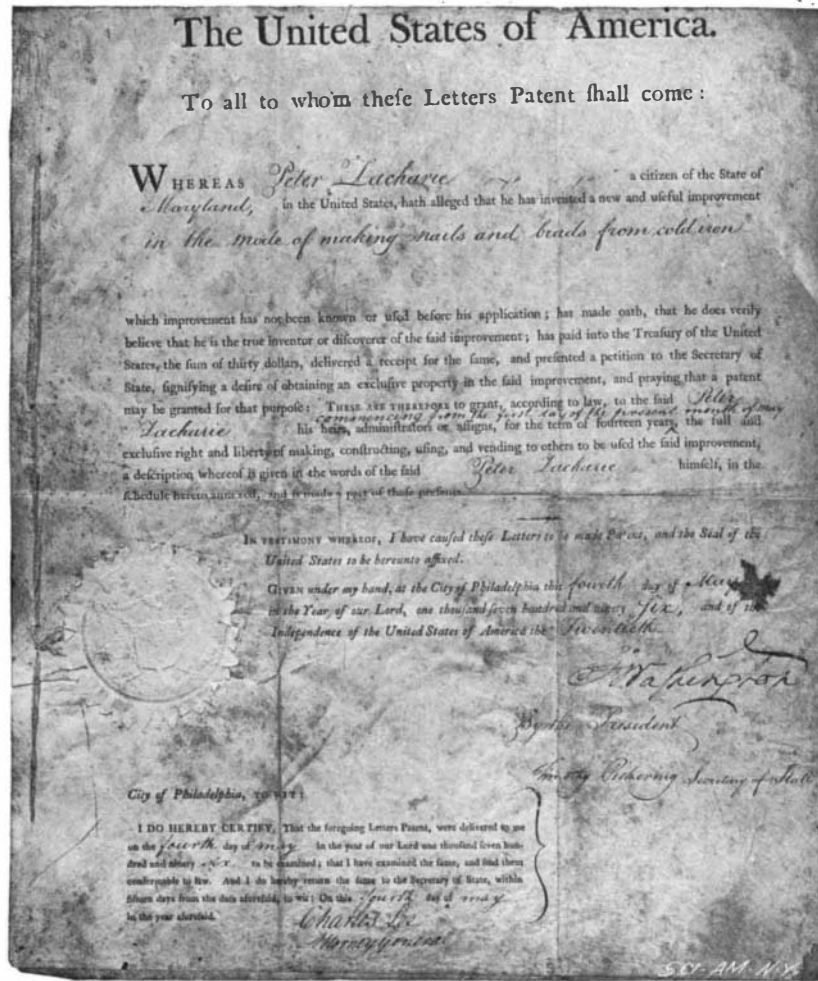 The United States of America.
To all to whom theſe Letters Patent ſhall come :
WHEREAS Peter Zacharie a citizen of the State of
Maryland, in the United States, hath alleged that he has invented a new and uſeful improvement
in the mode of making nails and brads from cold iron
which improvement has not been known or uſed before his application ; has made oath, that he does verily
believe that he is the true inventor or diſcoverer of the ſaid improvement ; has paid into the Treaſury of the United
States, the ſum of thirty dollars, delivered a receipt for the ſame, and preſented a petition to the Secretary of
State, ſignifying a deſire of obtaining an excluſive property in the ſaid improvement, and praying that a patent
may be granted for that purpoſe : THESE ARE THEREFORE to grant, according to law, to the ſaid Peter
commencing from the first day of the present month of may
Zacharie his heirs, adminiſtrators or aſſigns, for the term of fourteen years, the full and
excluſive right and liberty of making, conſtructing, uſing, and vending to others to be uſed the ſaid improvement,
a deſcription whereof is given in the words of the ſaid Peter Zacharie himſelf, in the
ſchedule hereto annexed, and is made a part of theſe preſents.
IN TESTIMONY WHEREOF, I have cauſed theſe Letters to be made Patent, and the Seal of the
United States to be hereunto affixed.
GIVEN under my hand, at the City of Philadelphia this fourth day of May
in the Year of our Lord, one thouſand ſeven hundred and ninety six, and of the
Independence of the United States of America the Twentieth.
G Washington
By the President
Timothy Pickering Secretary of State
City of Philadelphia, TO WIT :
I DO HEREBY CERTIFY, That the foregoing Letters Patent, were delivered to me
on the fourth day of may in the year of our Lord one thouſand ſeven hun-
dred and ninety six to be examined ; that I have examined the ſame, and find them
conformable to law. And I do hereby return the ſame to the Secretary of State, within
fifteen days from the date aforeſaid, to wit : On this fourth day of may
in the year aforeſaid.
Charles Lee
Attorney General
SCI-AM-N.Y.